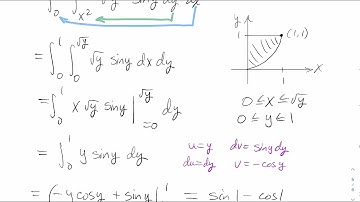 ∫₀¹ ∫_{x²} √y sin y dy dx
= ∫₀¹ ∫₀^{√y} √y sin y dx dy
= ∫₀¹ x √y sin y |_{=0}^{√y} dy
= ∫₀¹ y sin y dy
= (-y cos y + sin y |¹ = sin 1 - cos 1
y
1
(1,1)
1
x
0 ≤ x ≤ √y
0 ≤ y ≤ 1
u = y dv = sin y dy
du = dy v = -cos y